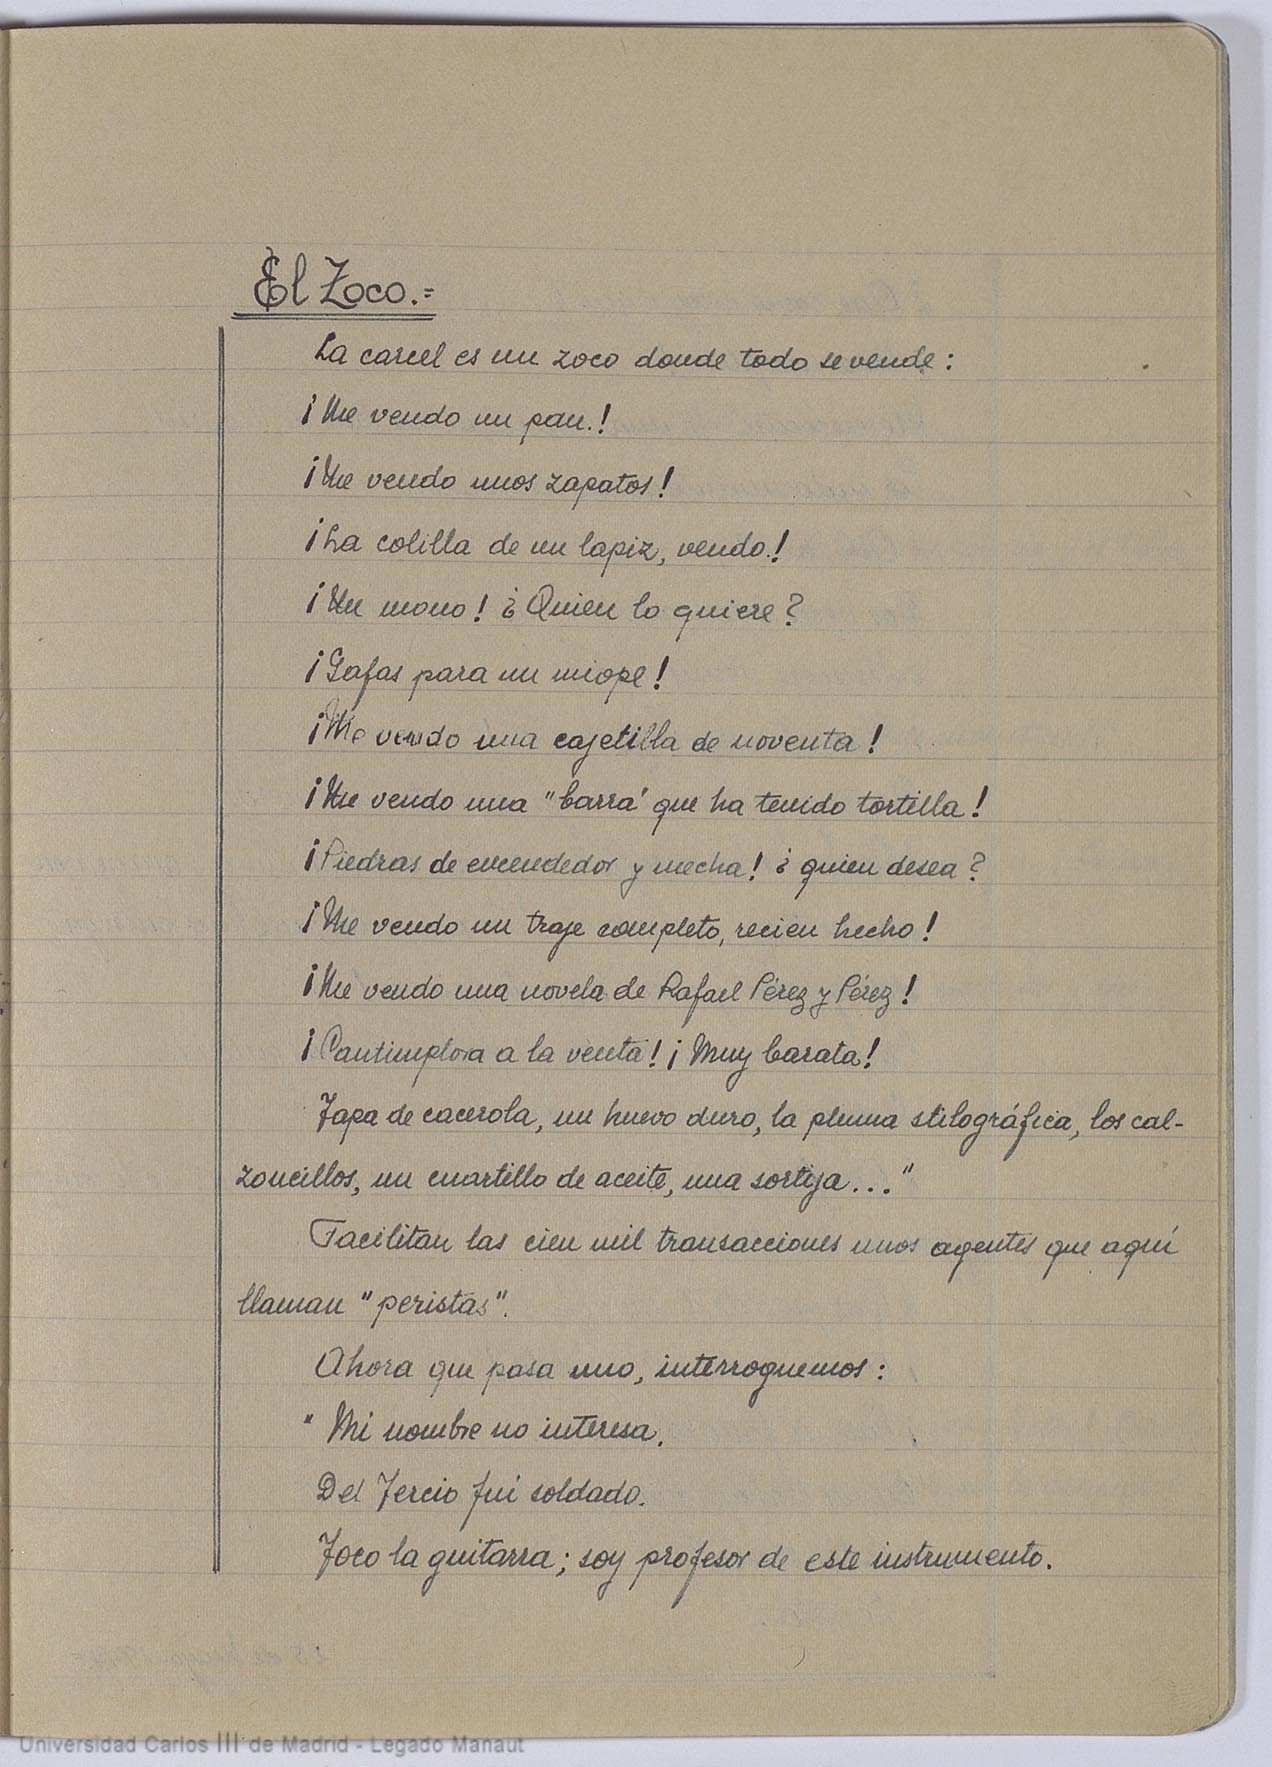 El Zoco.=
La carcel es un zoco donde todo se vende:
¡Me vendo un pan.!
¡Me vendo unos zapatos!
¡La colilla de un lapiz, vendo.!
¡Un mono! ¿Quien lo quiere?
¡Gafas para un miope!
¡Me vendo una cajetilla de noventa!
¡Me vendo una "barra" que ha tenido tortilla!
¡Piedras de encendedor y mecha! ¿quien desea?
¡Me vendo un traje completo, recien hecho!
¡Me vendo una novela de Rafael Pérez y Pérez!
¡Cantimplora a la venta! ¡Muy barata!
Tapa de cacerola, un huevo duro, la pluma stilográfica, los cal-
zoncillos, un cuartillo de aceite, una sortija..."
Facilitan las cien mil transacciones unos agentes que aquí
llaman "peristas".
Ahora que pasa uno, interroguemos:
"Mi nombre no interesa.
Del Tercio fuí soldado.
Toco la guitarra; soy profesor de este instrumento.
Universidad Carlos III de Madrid - Legado Manaut